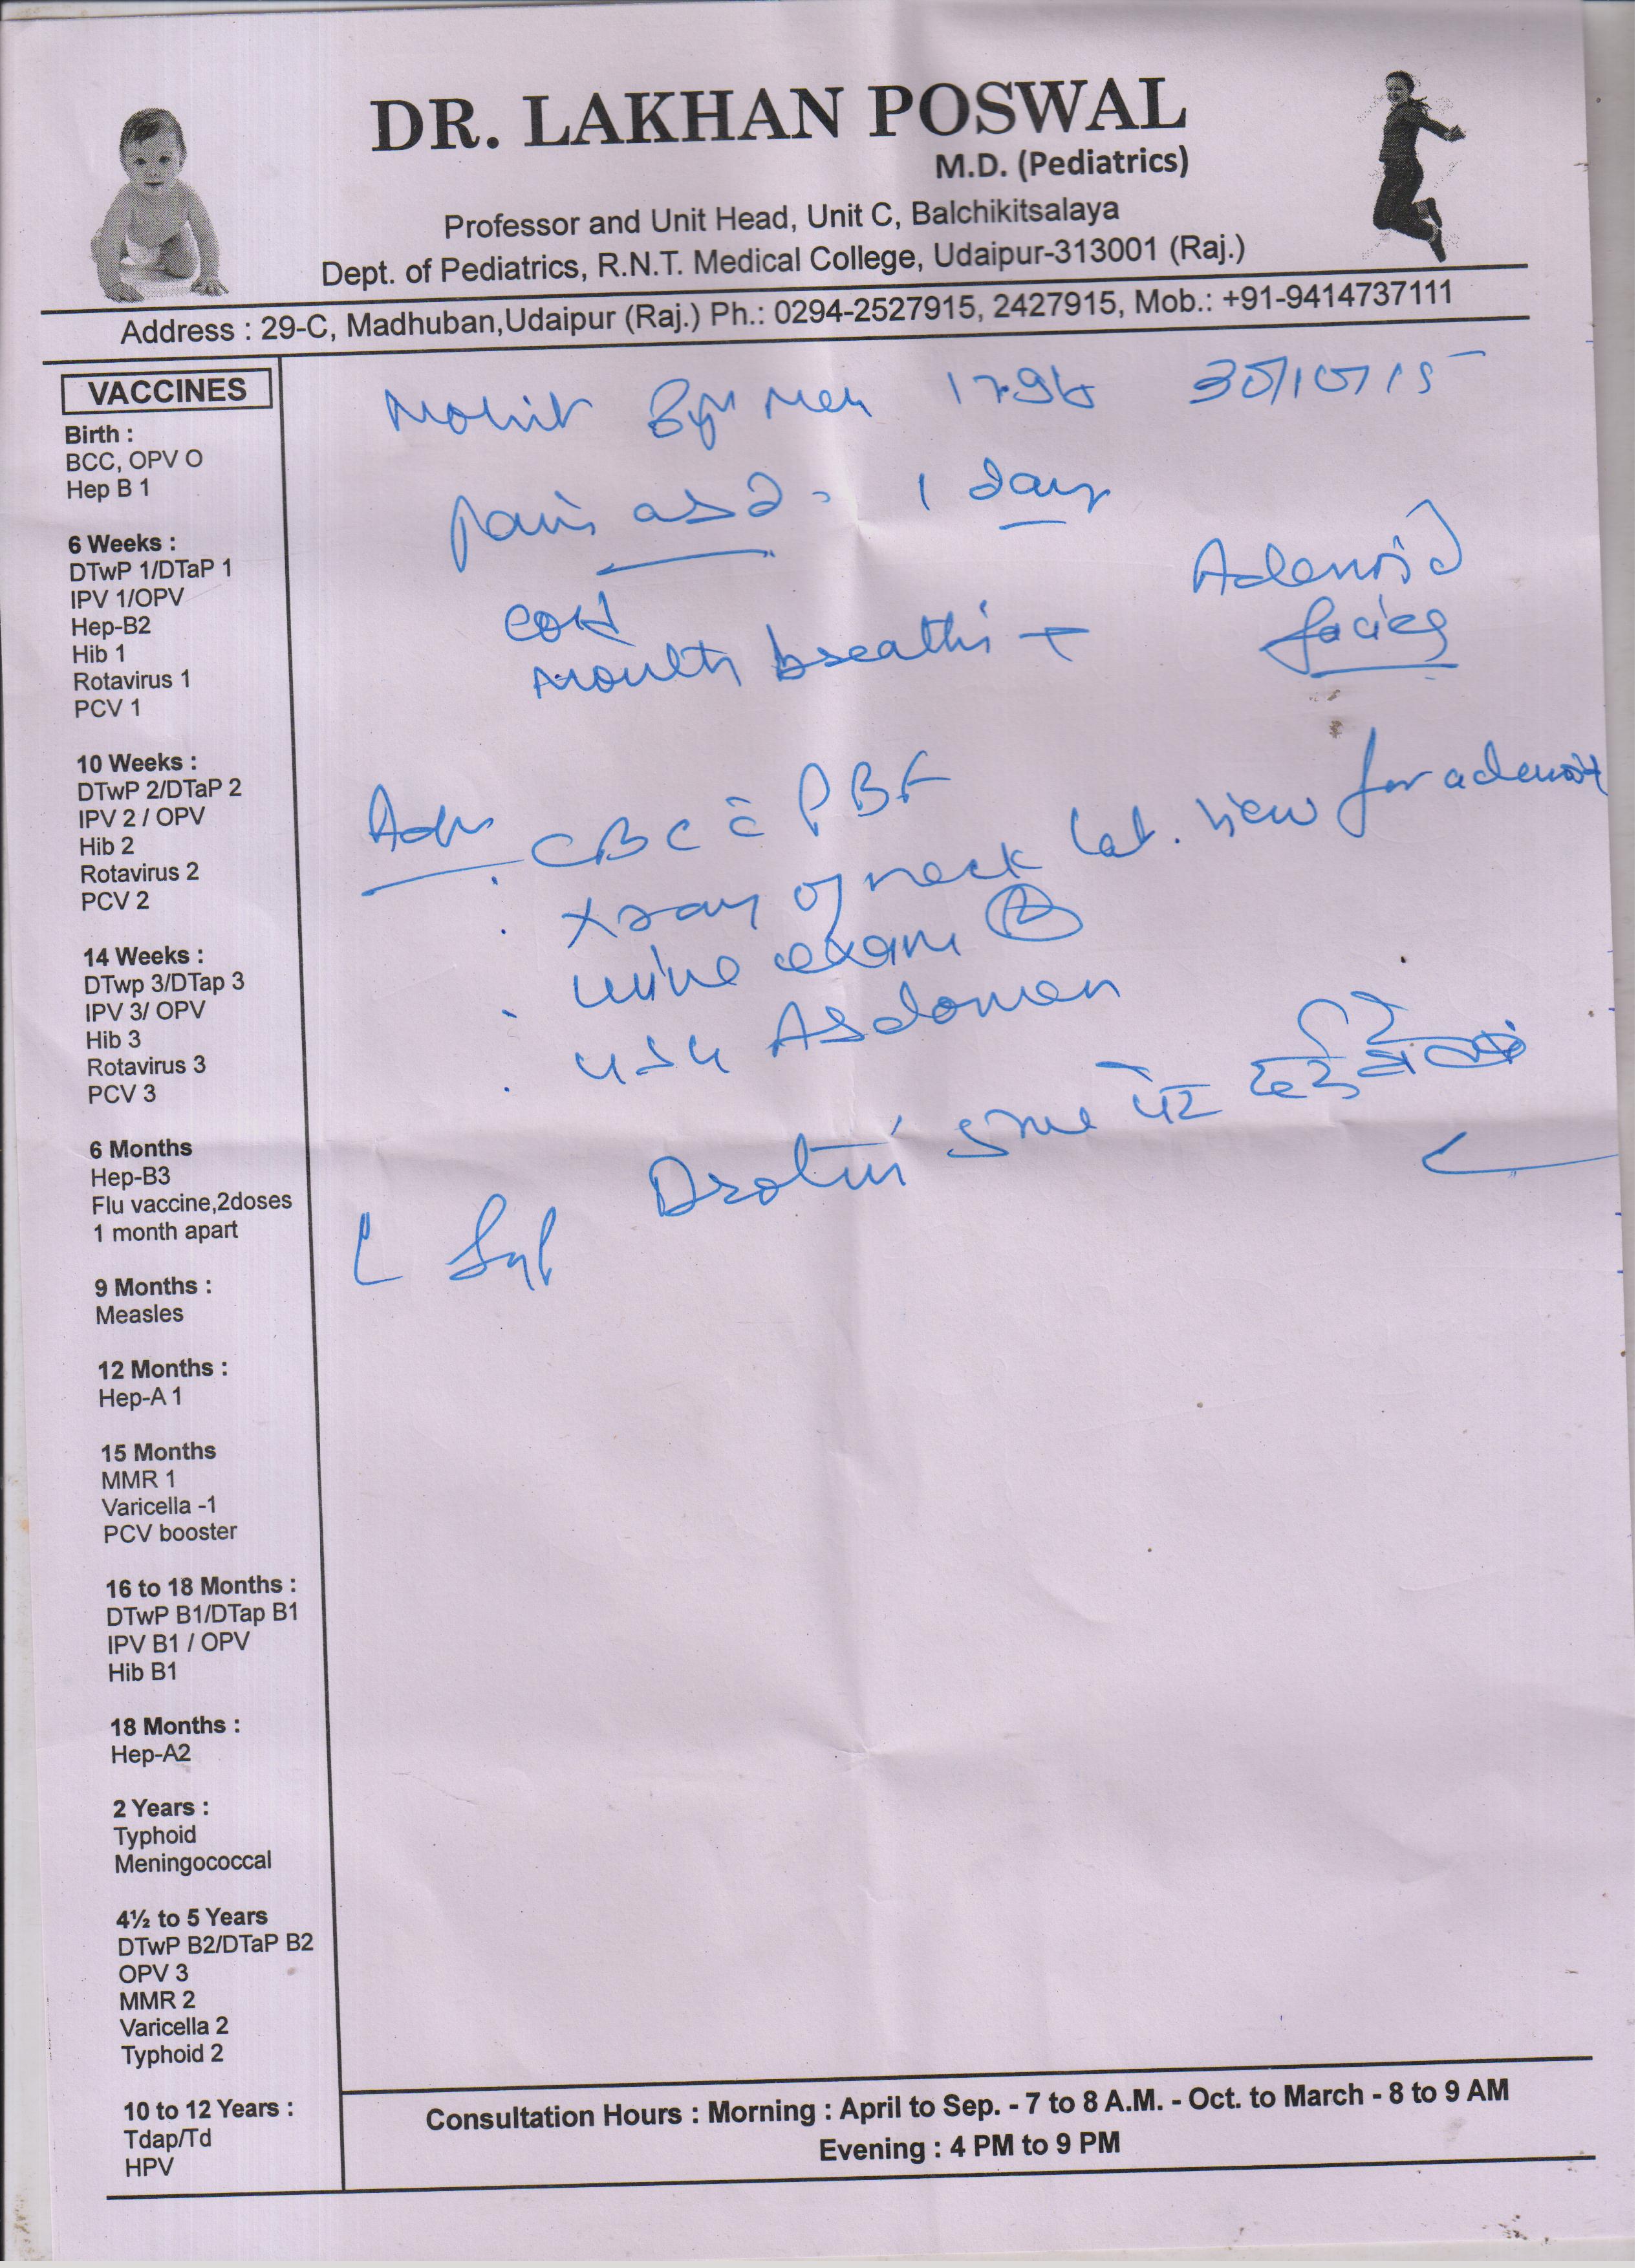 DR. LAKHAN POSWAL
M.D. (Pediatrics)
Professor and Unit Head, Unit C, Balchikitsalaya
Dept. of Pediatrics, R.N.T. Medical College, Udaipur-313001 (Raj.)
Address : 29-C, Madhuban,Udaipur (Raj.) Ph.: 0294-2527915, 2427915, Mob.: +91-9414737111
VACCINES
Birth :
BCC, OPV O
Hep B 1
6 Weeks :
DTwP 1/DTaP 1
IPV 1/OPV
Hep-B2
Hib 1
Rotavirus 1
PCV 1
10 Weeks :
DTwP 2/DTaP 2
IPV 2 / OPV
Hib 2
Rotavirus 2
PCV 2
14 Weeks :
DTwp 3/DTap 3
IPV 3/ OPV
Hib 3
Rotavirus 3
PCV 3
6 Months
Hep-B3
Flu vaccine,2doses
1 month apart
9 Months :
Measles
12 Months :
Hep-A 1
15 Months
MMR 1
Varicella -1
PCV booster
16 to 18 Months :
DTwP B1/DTap B1
IPV B1 / OPV
Hib B1
18 Months :
Hep-A2
2 Years :
Typhoid
Meningococcal
4½ to 5 Years
DTwP B2/DTaP B2
OPV 3
MMR 2
Varicella 2
Typhoid 2
10 to 12 Years :
Tdap/Td
HPV
Mohit 30/10/15
pain abd - 1 day
cold
mouth breathi +
Adenoid
facies
Adv CBC c̄ PBF
xray of neck lat. view for adenoid
urine exam
USG Abdomen
Syp Drotin 5 ml पेट दर्द
Consultation Hours : Morning : April to Sep. - 7 to 8 A.M. - Oct. to March - 8 to 9 AM
Evening : 4 PM to 9 PM